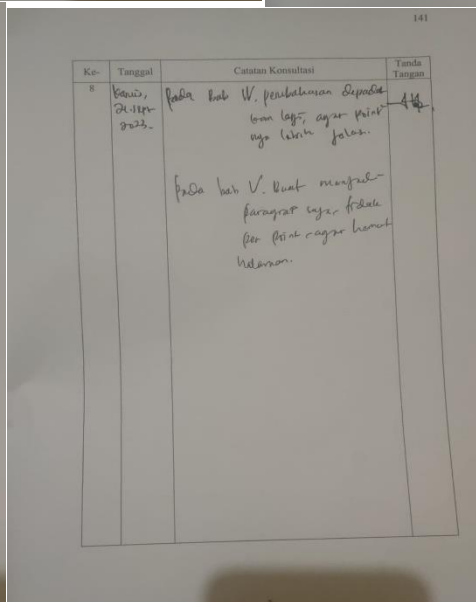 141
Ke-
Tanggal
Catatan Konsultasi
Tanda
Tangan
8
Kamis,
21. Sept
2023.
Pada bab IV. pembahasan dipadat
kan lagi, agar point
nya lebih jelas.
Pada bab V. Buat menjadi
paragraf saja, tidak
per point, agar hemat
halaman.